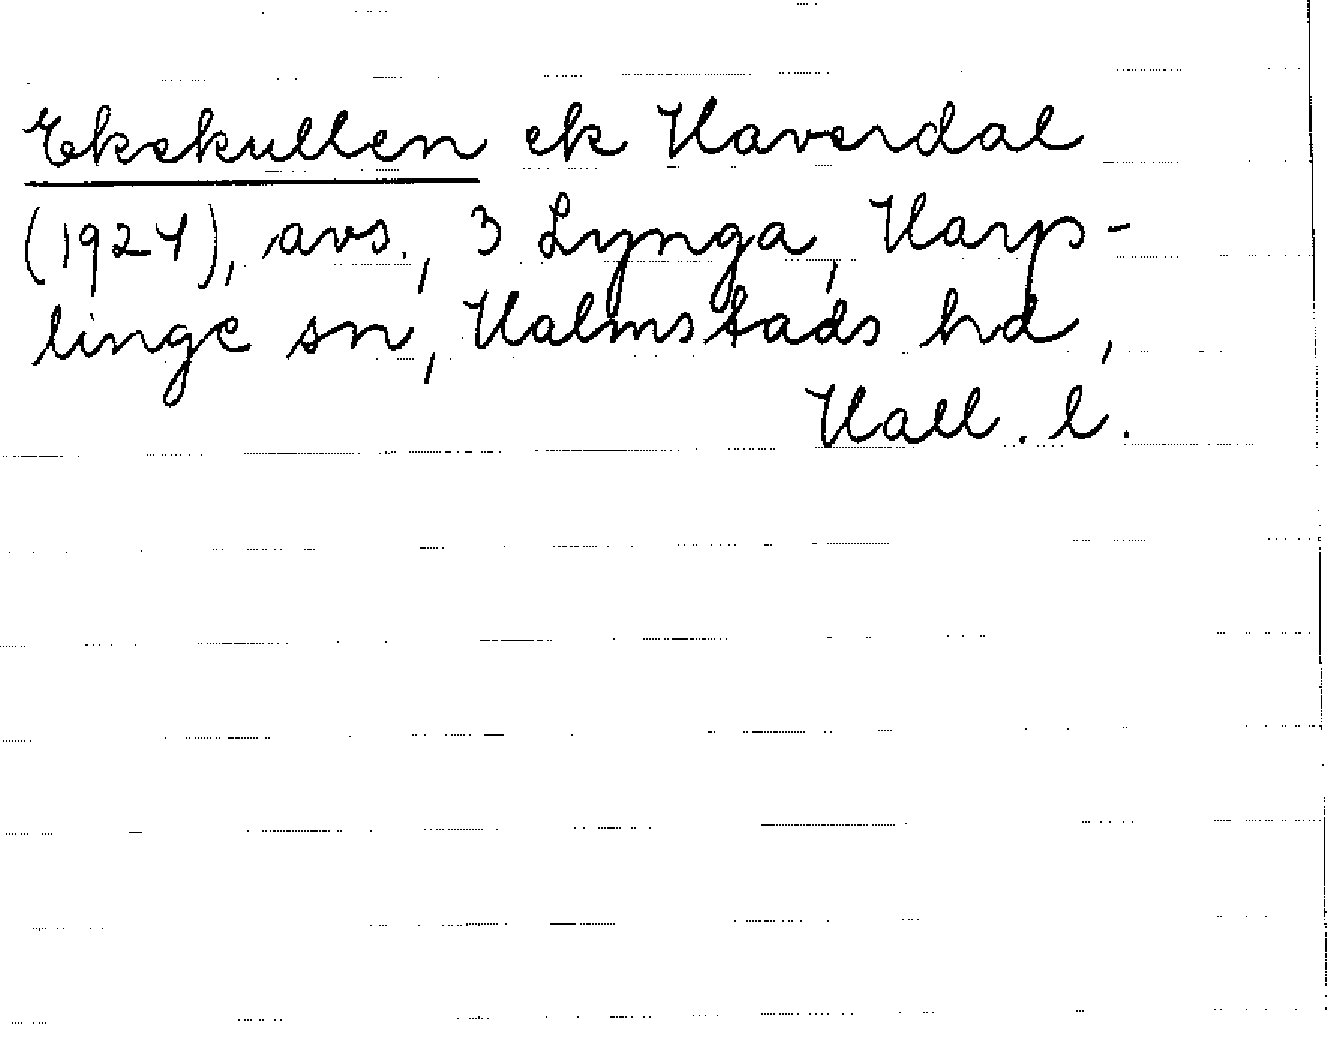 Ekekullen ek Haverdal
(1924), avs., 3 Lynga, Harp-
linge sn, Halmstads hd,
Hall. l.